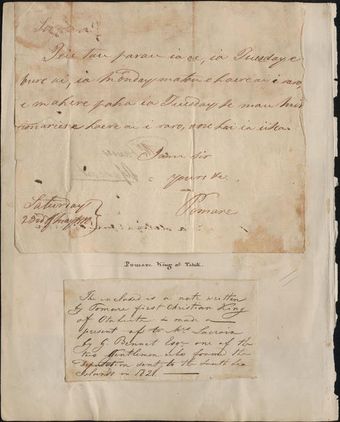 Teie tau parau ia oe, ia Tuesday e
bure ai, ia Monday matou e haere ai i raro,
e mahere paha ia Tuesday te mau mis
ionaries e haere ai i raro,
I am sir
yours &c.
Pomare
Saturday
23rd
Pomare King of Tahiti
The inclosed is a note written
by Pomare first Christian King
of Otaheite & was a
present of to Mrs
by G. Bennet Esqr one of the
two Gentlemen who formed the
Deputation sent to the South Sea
Islands in 1821.